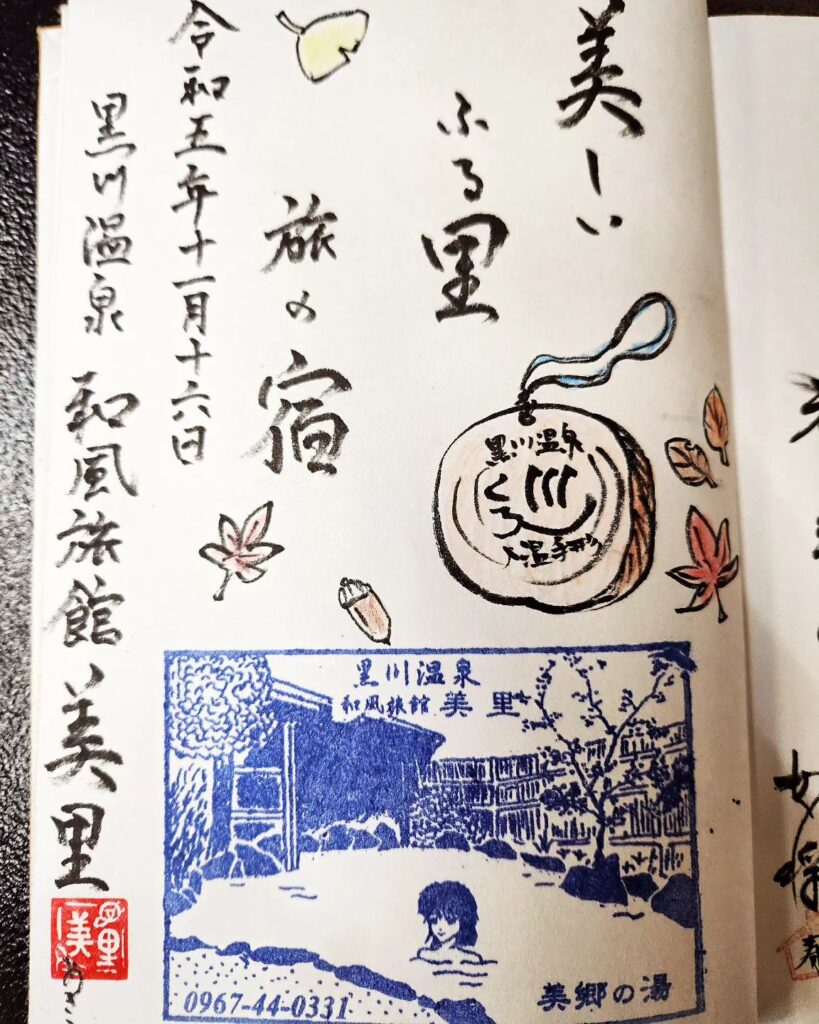 美しい
ふる里
旅の宿
令和五年十一月十六日
黒川温泉 和風旅館 美里
黒川温泉
入湯手形
黒川温泉
和風旅館 美里
美郷の湯
0967-44-0331
美里